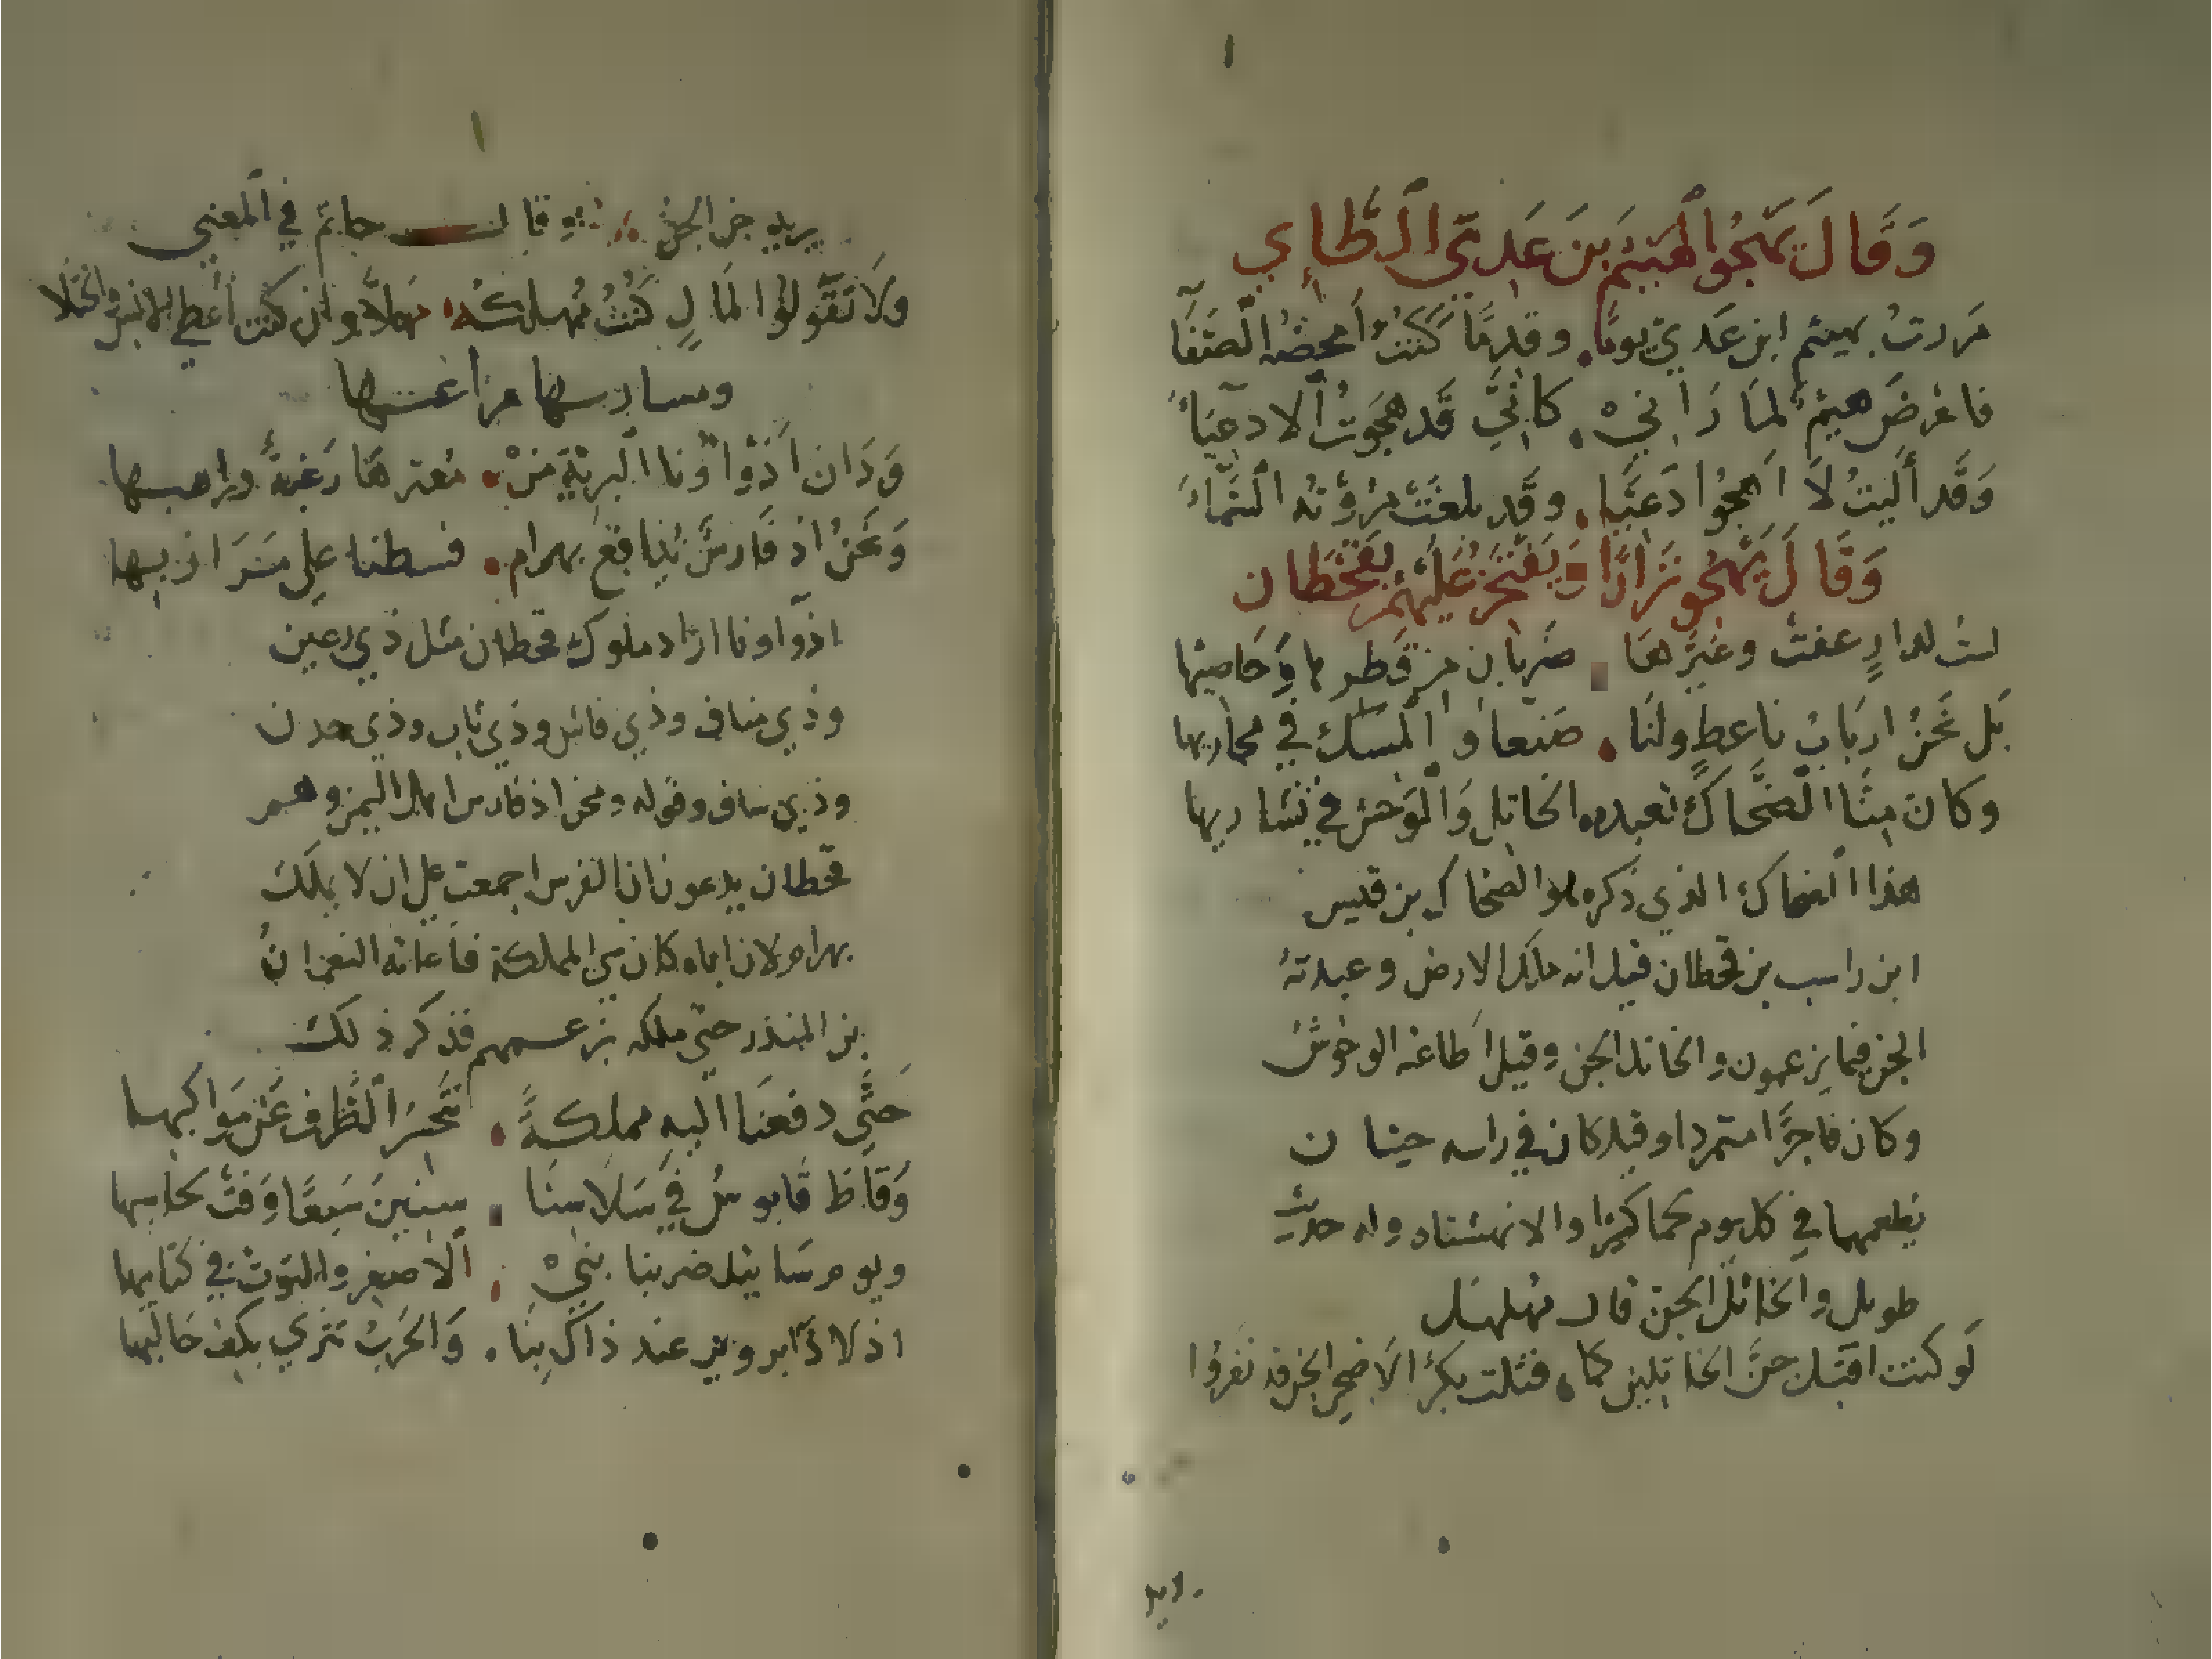 وَقَالَ يَهجُوا الهَيثَم بنَ عَدِيّ الطَّاءِي
مَررتُ بهيثم ابن عَدىّ يومًا وقدمًا كُنتُ أمحضُه الصَّفَآ
فاعرَضَ هيثمٌ لما رَانِيْ كانِّي قَد هَجَوتُ الادعيَاءَ
وَقَد أليتُ لاَ اَهجُوا دَعيًّا وقَد بلغَتْ مُرؤَتُه السَّمآءَ
وَقَالَ يَهجُو نزَارًا وَيَفتَخرُ عَليهم بقَحطَان
لستُ لدارٍ عفتْ وغيَّرهَا ضَربَان من قطرها وَحَاصبها
بَل نَحنُ اربَابُ نَاعِطٍ ولنَا صَنعا وُالمسك في محاربها
وكانَ مِنَّا الضَّحاكُ تعبده الخابل وَالوَحش في مَسَاربها
هذا الضحاك الذي ذكره هو الضحاك بن قيس
ابن راسب بن قحطان قيل انه ملك الارض وعبدتهُ
الجن فيما يزعمون والخابل الجن وقيل اطاعته الوحوش
وكان فاجرًا متمردا وقيل كان في راسه حيتان
يطعمهما في كل يوم لحما كثيرا والا نهشتاه وله حديث
طويل والخابل الجن قال مهلهل
لَو كنت اقتل جنَّ الخابلين كما قتلت بكرًا لاَضحى الجن قد نفروُا
يريد جن الجن وقال حاتم في المعنى
ولاَ تقُولوُا لمَالٍ كُنتُ مُهلكُه مَهلاً وان كنت أُعطى الانس والخَبَلا
ومساربها مراعيها
وَدَان اَذْواؤنا البريةَ منْ معترهَا رَغبةً وراهبها
وَنحنُ اذ فَارسٌ تُدَافعُ بهرام قسطنا على مَرَازبها
اذوآونا اراد ملوك قحطان مثل ذي رعين
وذي مناف وذي فائش وذي ناب وذي جدن
وذي مناف وقوله ونحن اذ فارس اهل اليمن وهم
قحطان يدعون ان الفرس اجمعت على ان لا يملك
بهرام لان اباه كان سئ المملكة فاعانه النعمانُ
بن المنذر حتى ملكه بزعمهم فذكر ذلك
حَتَّى دفعنَا اليه مملكةً تَحسَرُ الطَّرفَ عَن مَواكبها
وَقاظَ قَابوسُ في سَلاسلنَا سِنينَ سَبعًا وَفتْ لحاسبها
ويوم سَاتيدَ ضربنا بَنيْ الاصفر والموتُ في كتابها
اذ لاذ ابرويز عند ذاك بِنَا وَالحَربُ تَمري بكف حَالبها